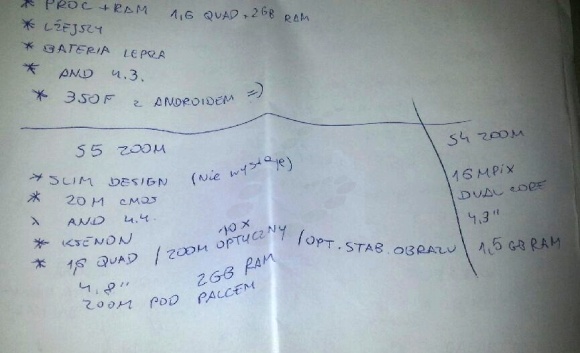 * PROC + RAM 1,6 QUAD, 2GB RAM
* LŻEJSZY
* BATERIA LEPSZA
* AND 4.3.
* 350F Z ANDROIDEM =)
S5 ZOOM
* SLIM DESIGN (Nie wystaje)
* 20M CMOS
* AND 4.4.
* KSENON
* 1,6 QUAD / 10X ZOOM OPTYCZNY / OPT. STAB. OBRAZU
4,8" 2GB RAM
ZOOM POD PALCEM
S4 ZOOM
16 MPIX
DUAL CORE
4,3"
1,5 GB RAM